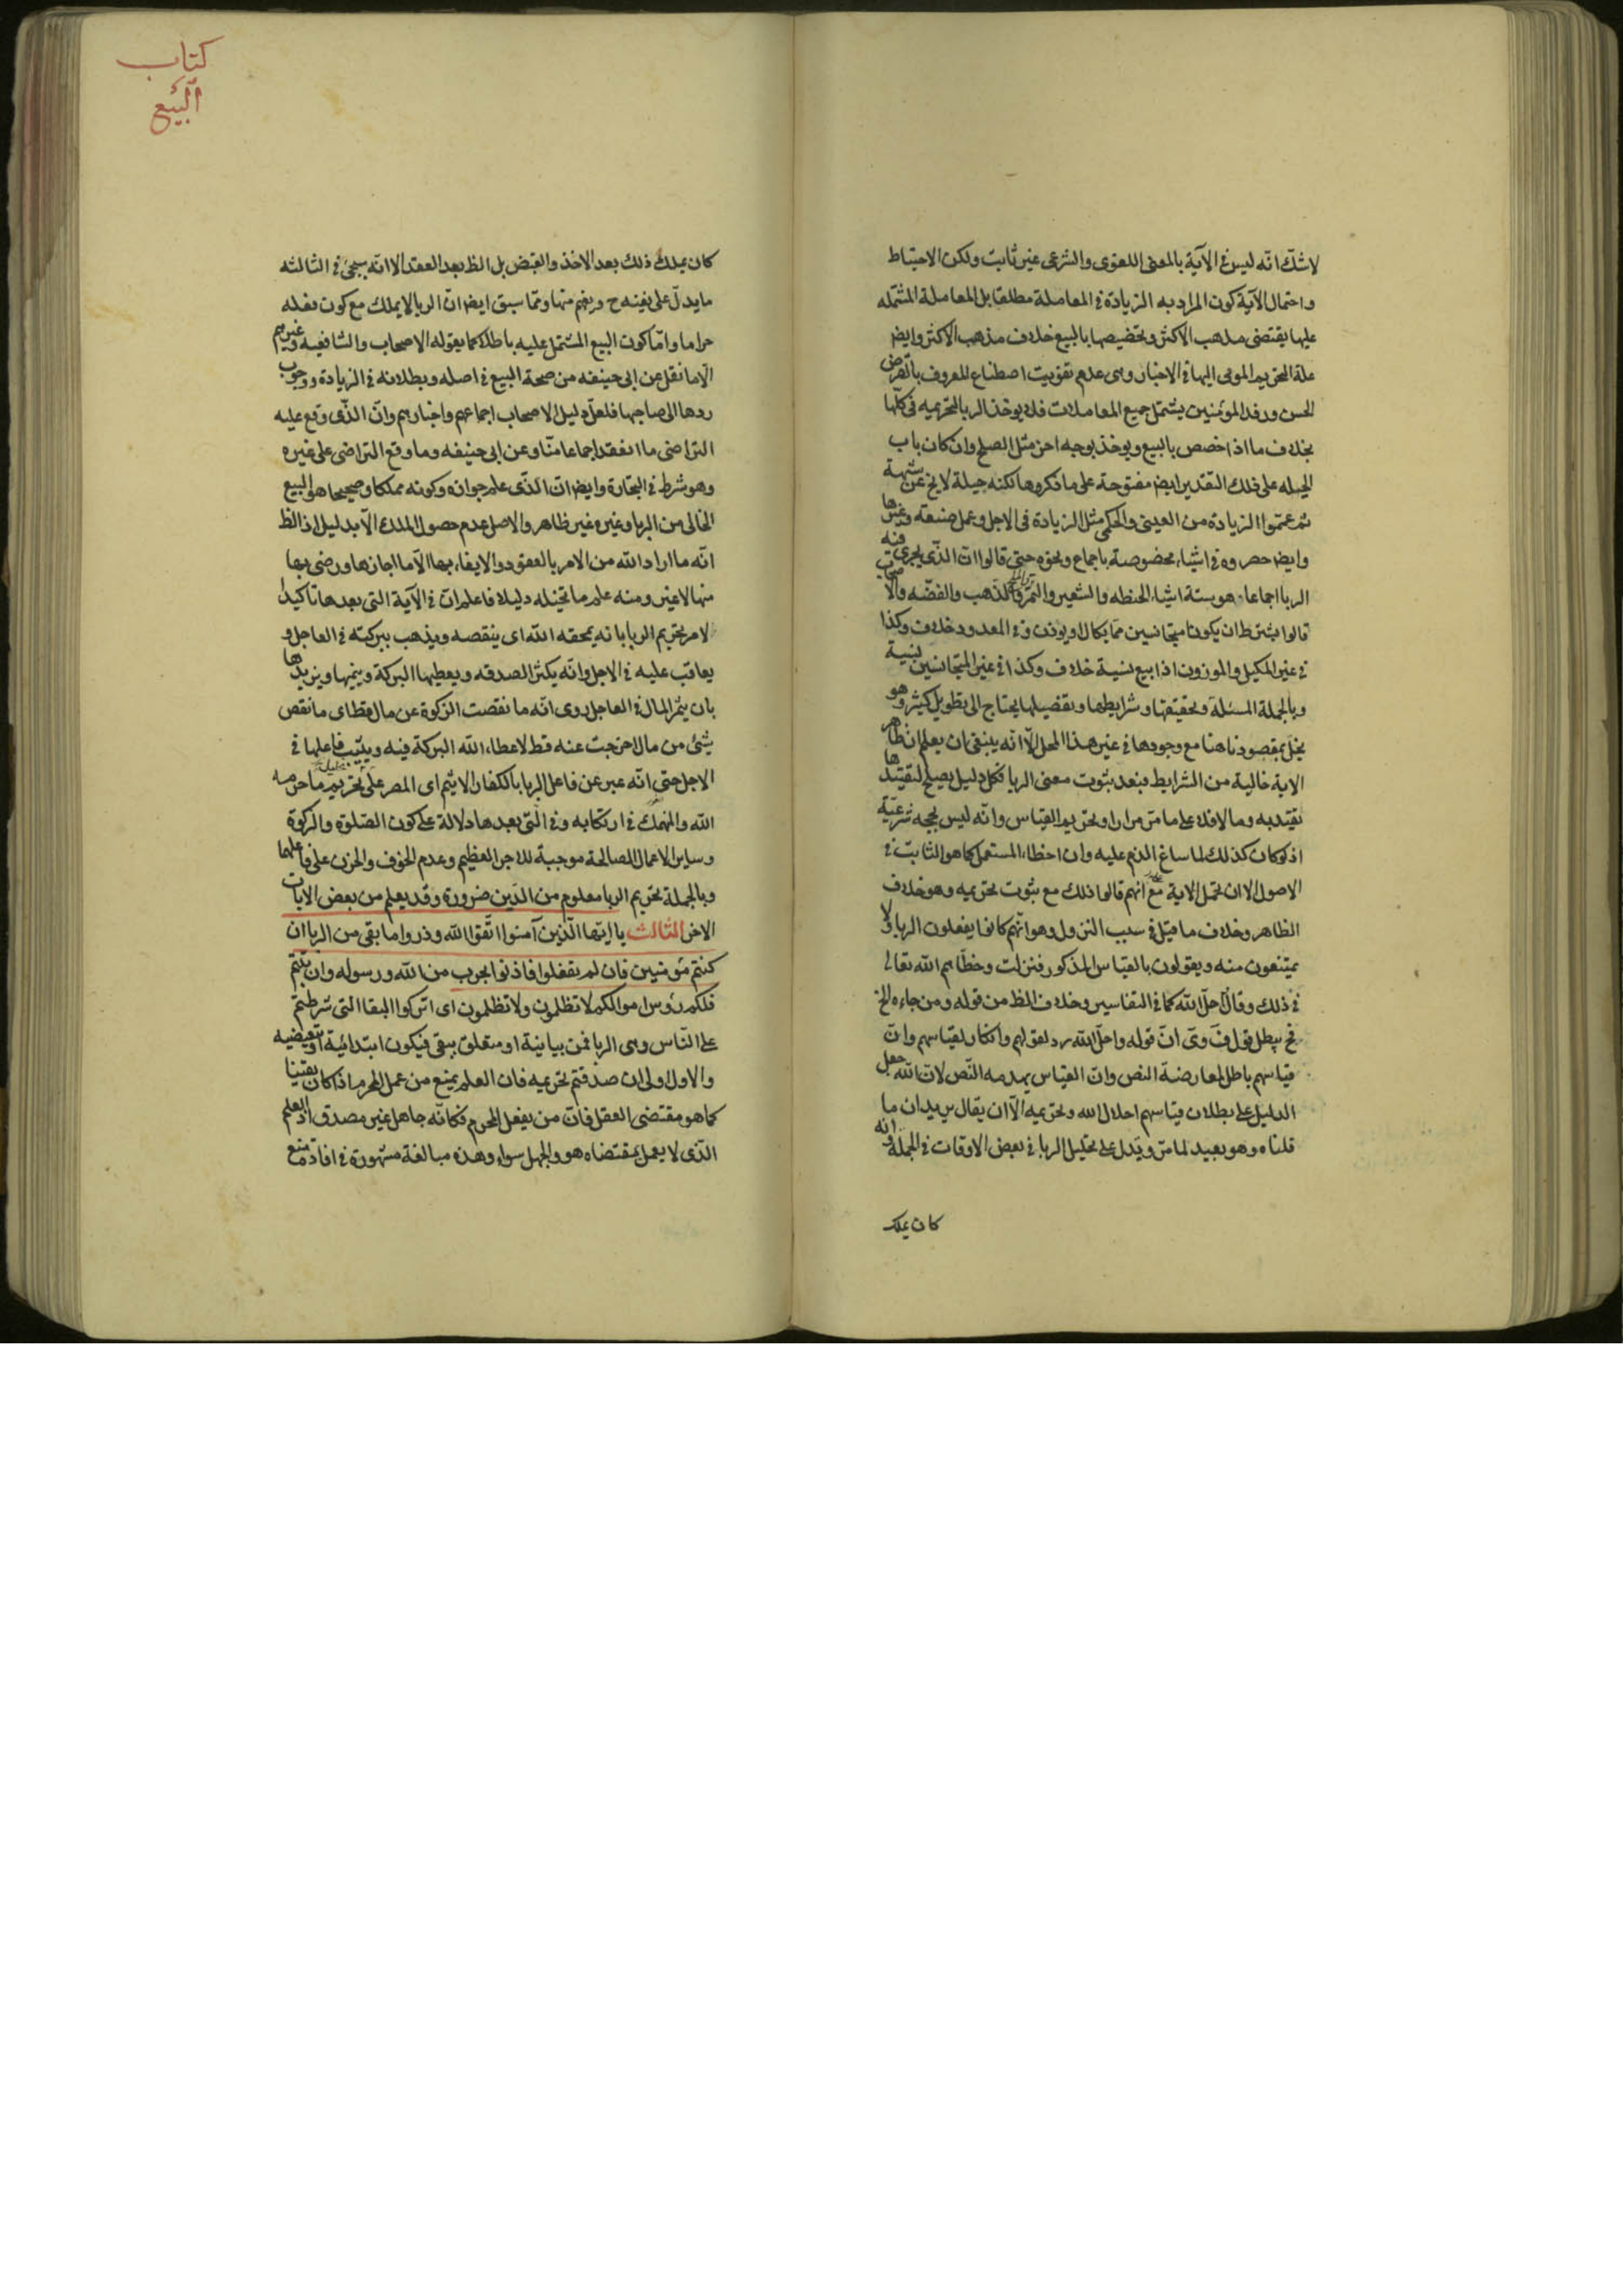 لا شك انه ليس في الآية بالمعنى اللغوى والشرعى غير ثابت ولكن الاحتياط
واحتمال الآية كون المراد به الزيادة في المعاملة مطلقا بل المعاملة المشتمله
عليها يقتضى مذهب الاكثر وتخصيصها بالبيع خلاف مذهب الاكثر وايض
علة التحريم المومى اليها في الاخبار وهى عدم تفويت اصطناع المعروف بالقرض
الحسن ورفد المؤمنين يشتمل جميع المعاملات فلا يوخذ الربا بالتحريميه في كلها
بخلاف ما اذا خصص بالبيع ويوخذ بوجه اخر مثل الصلح وان كان باب
الحيله على ذلك التقدير ايض مفتوحة على ما ذكروها لكنه حيلة لا يخ عن شبهة
ثم عمموا الزيادة من العينى والحكمى مثل الزيادة في الاجل وعمل صنعة وغيرها
وايض حصروه في اشياء مخصوصة باجماع ونحوه حتى قالوا ان الذى يجرى فيه
الربا اجماعا هو ستة اشياء الحنطه والشعير والتمر والملح والذهب والفضه والاصحاب
قالوا بشرط ان يكونا متجانسين مما يكال او يوزن وفي المعدود خلاف وكذا
في غير المكيل والموزون اذا بيع نسية خلاف وكذا في غير المتجانسين نسية
وبالجملة المسئلة وتحقيقها وشرايطها وتفصيلها يحتاج الى تطويل كثير وهو
يخل بمقصودنا هنا مع وجودها في غير هذا المحل الا انه ينبغى ان يعلم ان ظاهر
الاية خالية من الشرايط فبعد ثبوت معنى الربا فكل دليل يصلح لتقييدها
يقيد به وما لا فلا على ما مر مرارا وتحريم القياس وانه ليس بحجه شرعية
اذ لو كان كذلك لما ساغ الذم عليه وان اخطاء المستعمل كما هو الثابت في
الاصول الا ان تحمل الاية على انهم قالوا ذلك مع ثبوت تحريمه وهو خلاف
الظاهر وخلاف ما قيل في سبب النزول وهو انهم كانوا يفعلون الربا ولا
يمتنعون منه ويقولون بالقياس المذكور فنزلت وخطاهم الله تعالى
في ذلك وقال احل الله كما في التفاسير وخلاف الظ من قوله ومن جاءه الخ
فح يبطل قول ف وى ان قوله واحل الله رد لقولهم وانكار لقياسهم وان
قياسهم باطل لمعارضة النص وان القياس يهدمه النص لان الله جعل
الدليل على بطلان قياسهم احلال الله وتحريمه الا ان يقال يريدان ما
قلناه وهو بعيد لما مر ويدل على تحليل الربا في بعض الاوقات في الجملة وانه
كان يملك
كتاب
البيع
كان يملك ذلك بعد الاخذ والقبض بل الظ بعد العقد الا انه سيجئ في الثالثه
ما يدل على نفيه ح ويفهم منها ومما سبق ايض ان الربا لا يملك مع كون فعله
حراما واما كون البيع المشتمل عليه باطلا كما يقوله الاصحاب والشافعيه وغيرهم
الا ما نقل عن ابى حنيفه من صحة البيع في اصله وبطلانه في الزيادة ووجوب
ردها الى صاحبها فلعل دليل الاصحاب اجماعهم واخبارهم وان الذى وقع عليه
التراضى ما انعقد اجماعا منا وعن ابى حنيفه وما وقع التراضى على غيره
وهو شرط في التجارة وايض ان الذى علم جوازه وكونه مملكا وصحيحا هو البيع
الخالى من الربا وغيره غير ظاهر والاصل عدم حصول الملك الا بدليل اذ الظ
انه ما اراد الله من الامر بالعقود والايفاء بها الا ما اجازها ورضى بها
منها لا غير ومنه علم ما تخيله دليلا فاعلم ان في الآية التى بعدها تاكيدا
لامر تحريم الربا بانه يمحقه الله اى ينقصه ويذهب ببركته في العاجل و
يعاقب عليه في الاجل وانه يكثر الصدقه ويعطيها البركة وينميها ويزيدها
بان يثمر المال في العاجل روى انه ما نقصت الزكوة عن مال قط اى ما نقص
شئ من مال اخرجت عنه قط لاعطاء الله البركة فيه ويثيب فاعلها في
الاجل حتى انه عبر عن فاعل الربا بالكفار الاثيم اى المصر على تحليل ما حرمه
الله والمنهمك في ارتكابه وفي التى بعدها دلالة على كون الصلوة والزكوة
وساير الاعمال الصالحة موجبة للاجر العظيم وعدم الخوف والحزن على فاعلها
وبالجملة تحريم الربا معلوم من الدين ضرورة وقد يعلم من بعض الايات
الاخر الثالث يا ايها الذين آمنوا اتقوا الله وذروا ما بقى من الربا ان
كنتم مؤمنين فان لم تفعلوا فاذنوا بحرب من الله ورسوله وان تبتم
فلكم رؤس اموالكم لا تظلمون ولا تظلمون اى اتركوا البقايا التى شرطتم
على الناس وهى الربا فمن بيانية او متعلق ببقى فيكون ابتدائية او تبعيضيه
والاول اولى ان صدقتم بتحريمه فان العلم يمنع من عمل المحرم اذا كان يقينا
كما هو مقتضى العقل فان من يفعل المحرم فكانه جاهل غير مصدق اذ العلم
الذى لا يعمل بمقتضاه هو والجهل سواء وهذه مبالغة مشهورة في افادة منع